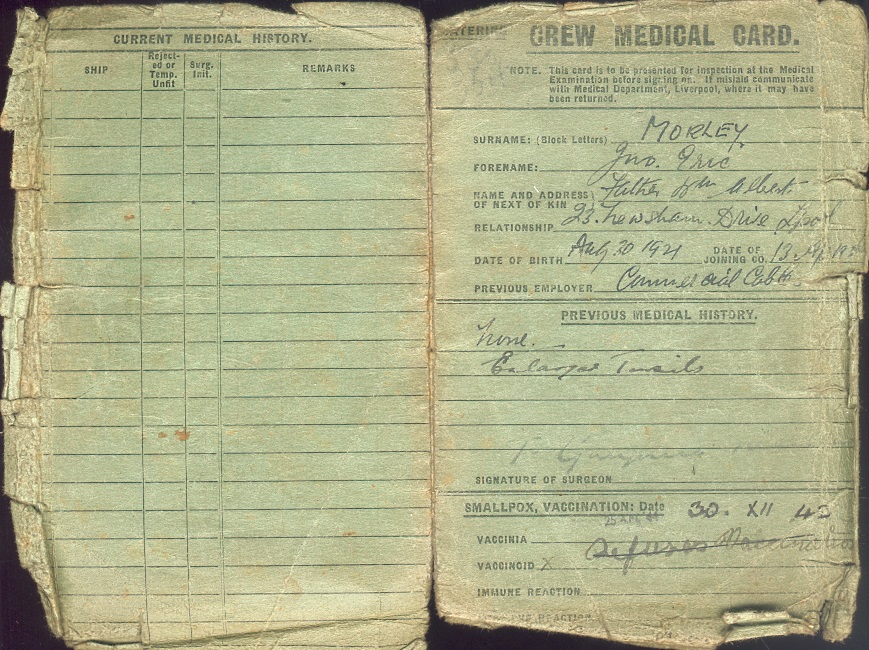 CURRENT MEDICAL HISTORY.
SHIP
Reject-
ed or
Temp.
Unfit
Surg.
Init.
REMARKS
CREW MEDICAL CARD.
NOTE. This card is to be presented for inspection at the Medical
Examination before signing on. If mislaid communicate
with Medical Department, Liverpool, where it may have
been returned.
SURNAME: (Block Letters) MORLEY
FORENAME: Jno. Eric
NAME AND ADDRESS Father Wm Albert
OF NEXT OF KIN 23. Newsham Drive L'pool
RELATIONSHIP
DATE OF BIRTH Aug 20 1921 DATE OF JOINING CO. 13
PREVIOUS EMPLOYER Commercial Cable
PREVIOUS MEDICAL HISTORY.
None.
Enlarged Tonsils
SIGNATURE OF SURGEON
SMALLPOX, VACCINATION: Date 30. XII 42
VACCINIA
Refuses Vaccination
VACCINOID X
IMMUNE REACTION
REACTION